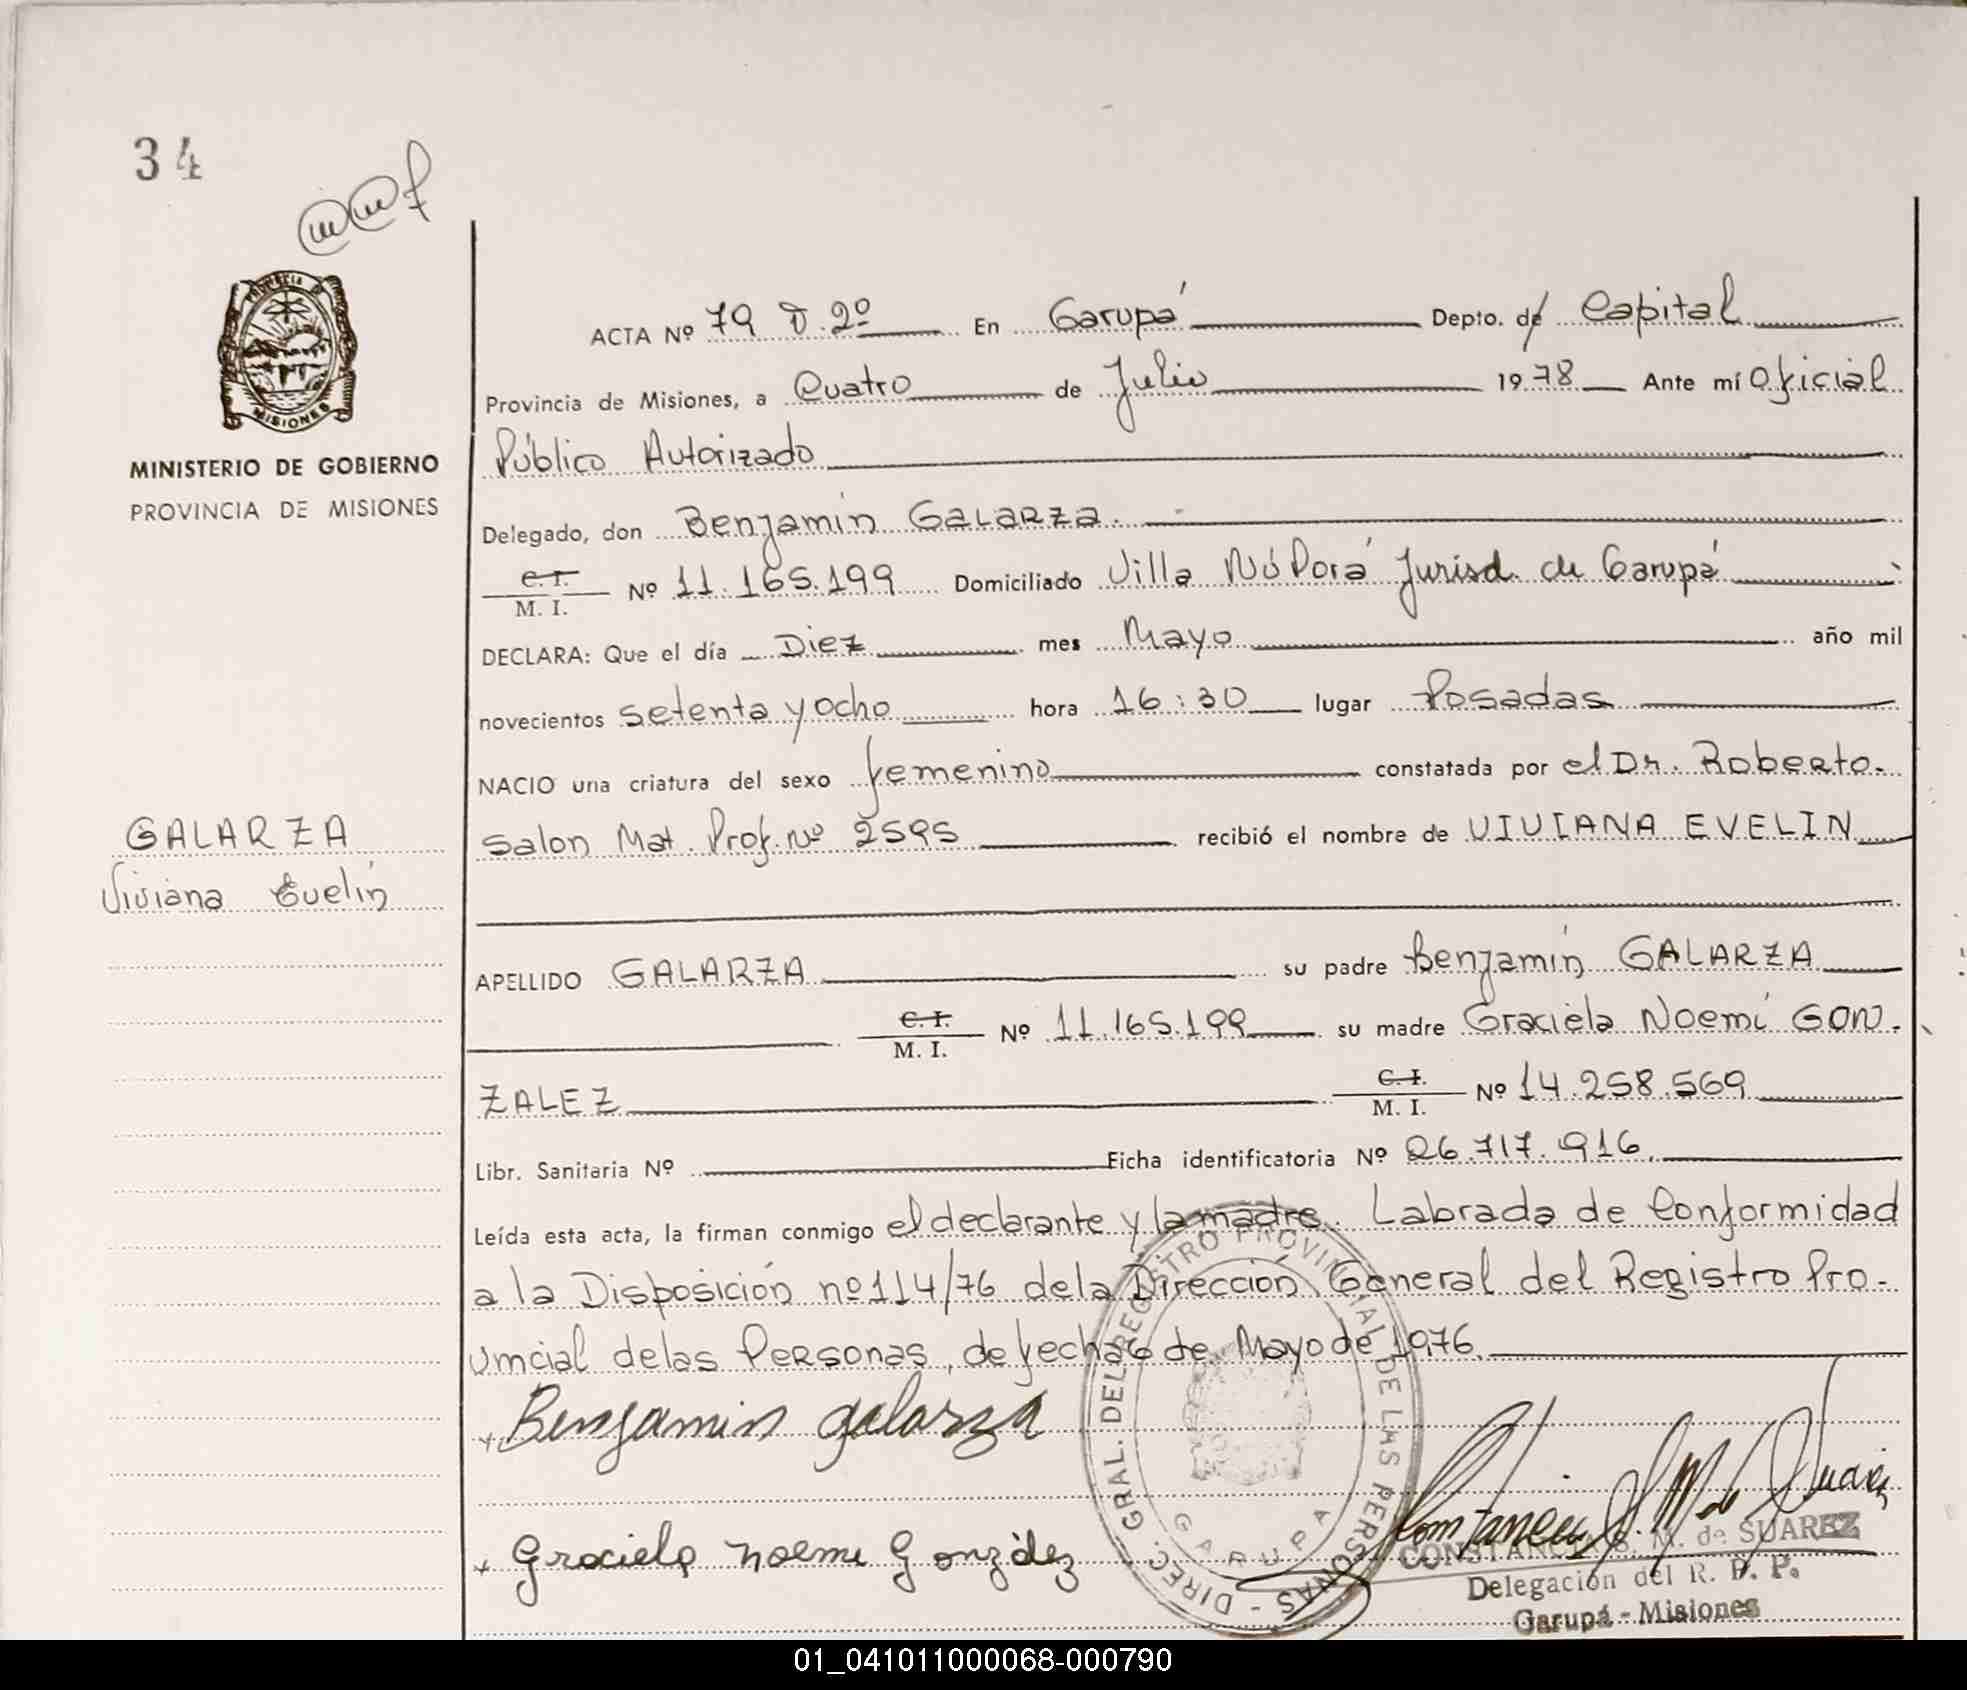 34
PROVINCIA DE
MISIONES
MINISTERIO DE GOBIERNO
PROVINCIA DE MISIONES
ACTA Nº 79 T. 2º En Garupá Depto. de Capital
Provincia de Misiones, a Cuatro de Julio 1978 Ante mí Oficial
Público Autorizado
Delegado, don Benjamín GALARZA.
C. I. / M. I. Nº 11.165.199 Domiciliado Villa Ñú Porá Jurisd. de Garupá
DECLARA: Que el día Diez mes Mayo año mil
novecientos setenta y ocho hora 16:30 lugar Posadas
NACIO una criatura del sexo femenino constatada por el Dr. Roberto
Salon Mat. Prof. Nº 2595 recibió el nombre de VIVIANA EVELIN
GALARZA
Viviana Evelín
APELLIDO GALARZA su padre Benjamín GALARZA
C. I. / M. I. Nº 11.165.199 su madre Graciela Noemí GON-
ZALEZ C. I. / M. I. Nº 14.258.569
Libr. Sanitaria Nº Ficha identificatoria Nº 26.717.916.
Leída esta acta, la firman conmigo el declarante y la madre. Labrada de Conformidad
a la Disposición nº 114/76 de la Dirección General del Registro Pro-
vincial de las Personas, de fecha 6 de Mayo de 1976.
Benjamin galarza
Graciela noemi González
DIREC. GRAL. DEL REGISTRO PROVINCIAL DE LAS PERSONAS -
GARUPA
CONSTANCIA S. M. de SUAREZ
Delegación del R. P. P.
Garupá - Misiones
01_041011000068-000790